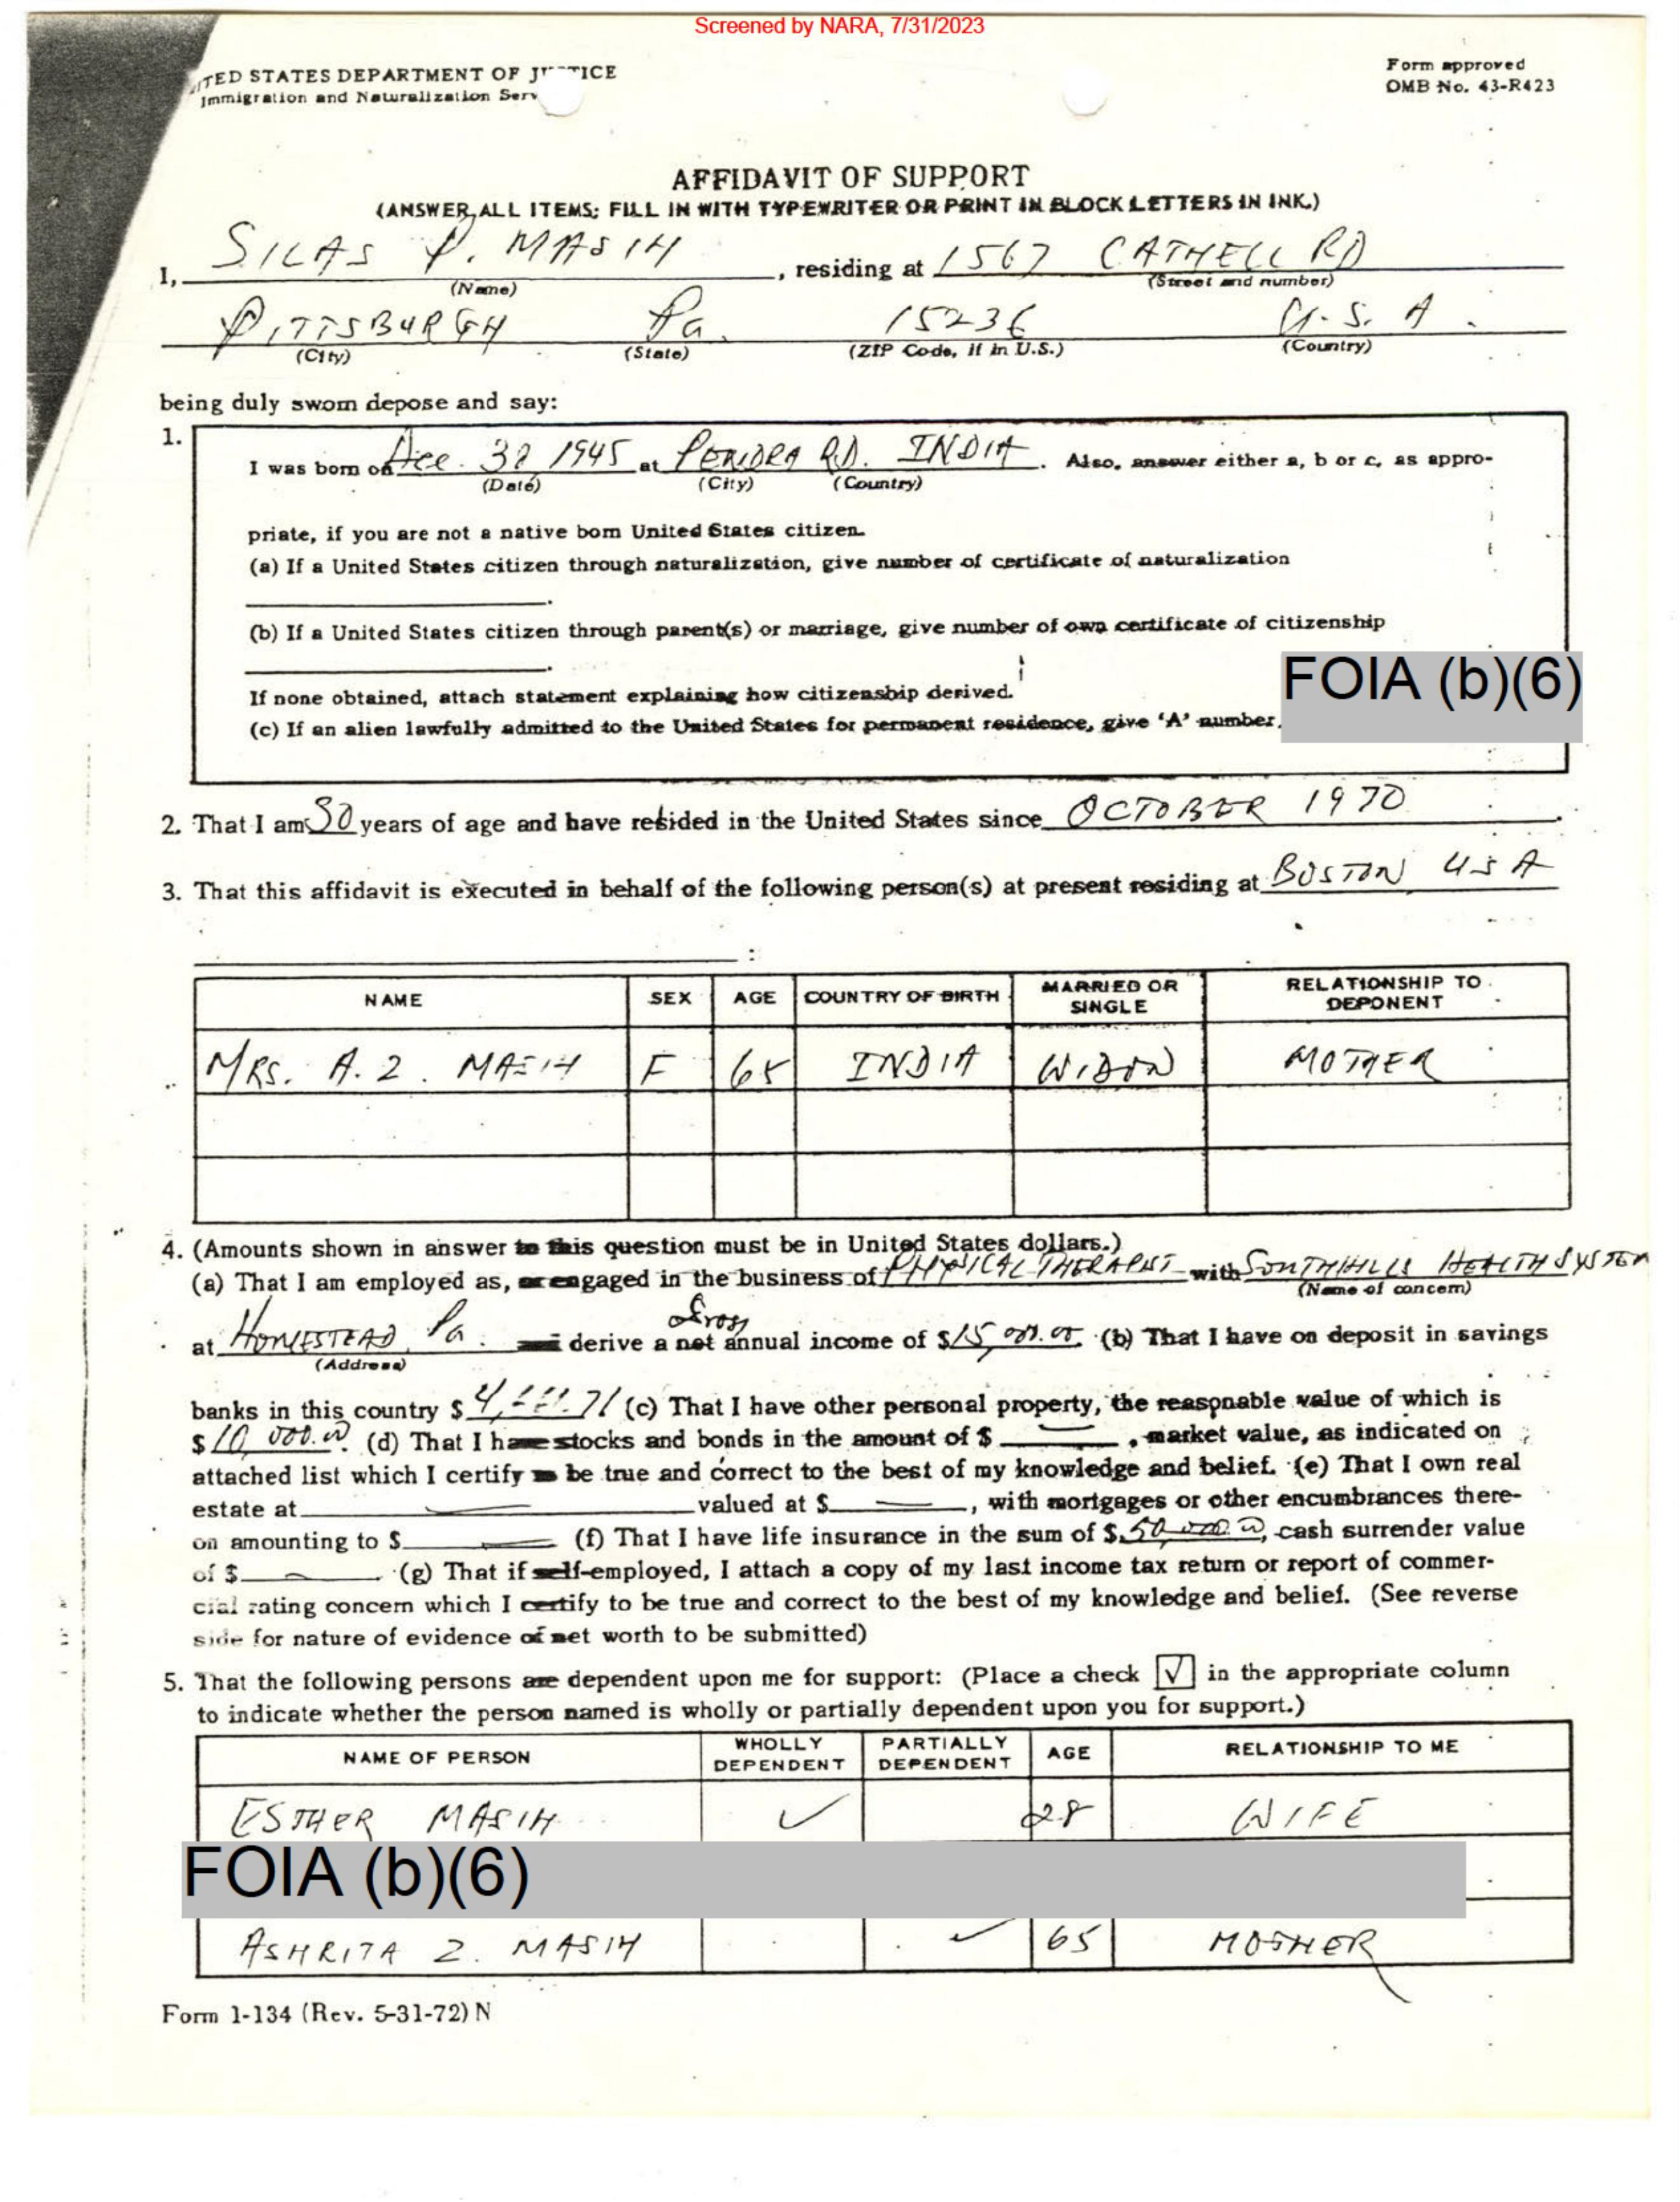 Screened by NARA, 7/31/2023
ITED STATES DEPARTMENT OF J TICE
Immigration and Naturalization Serv
Form approved
OMB No. 43-R423
AFFIDAVIT OF SUPPORT
(ANSWER ALL ITEMS; FILL IN WITH TYPEWRITER OR PRINT IN BLOCK LETTERS IN INK.)
I, SILAS P. MASIH, residing at 1567 CATHELL RD
(Name) (Street and number)
PITTSBURGH Pa. 15236 U.S.A.
(City) (State) (ZIP Code, if in U.S.) (Country)
being duly sworn depose and say:
1.
I was born on Dec. 30 1945 at PENDRA RD. INDIA. Also, answer either a, b or c, as appro-
(Date) (City) (Country)
priate, if you are not a native born United States citizen.
(a) If a United States citizen through naturalization, give number of certificate of naturalization
.
(b) If a United States citizen through parent(s) or marriage, give number of own certificate of citizenship
.
If none obtained, attach statement explaining how citizenship derived.
(c) If an alien lawfully admitted to the United States for permanent residence, give 'A' number.
FOIA (b)(6)
2. That I am 30 years of age and have resided in the United States since OCTOBER 1970.
3. That this affidavit is executed in behalf of the following person(s) at present residing at BOSTON USA
:
NAME SEX AGE COUNTRY OF BIRTH MARRIED OR SINGLE RELATIONSHIP TO DEPONENT
MRS. A. Z. MASIH F 65 INDIA WIDOW MOTHER
4. (Amounts shown in answer to this question must be in United States dollars.)
(a) That I am employed as, or engaged in the business of PHYSICAL THERAPIST with SOUTHHILLS HEALTH SYSTEM
(Name of concern)
Gross
at HOMESTEAD, Pa. and derive a net annual income of $15,000.00. (b) That I have on deposit in savings
(Address)
banks in this country $ (c) That I have other personal property, the reasonable value of which is
$10,000.00. (d) That I have stocks and bonds in the amount of $ —, market value, as indicated on
attached list which I certify to be true and correct to the best of my knowledge and belief. (e) That I own real
estate at — valued at $ —, with mortgages or other encumbrances there-
on amounting to $ — (f) That I have life insurance in the sum of $50,000.00, cash surrender value
of $ —. (g) That if self-employed, I attach a copy of my last income tax return or report of commer-
cial rating concern which I certify to be true and correct to the best of my knowledge and belief. (See reverse
side for nature of evidence of net worth to be submitted)
5. That the following persons are dependent upon me for support: (Place a check √ in the appropriate column
to indicate whether the person named is wholly or partially dependent upon you for support.)
NAME OF PERSON WHOLLY DEPENDENT PARTIALLY DEPENDENT AGE RELATIONSHIP TO ME
ESTHER MASIH ✓ 28 WIFE
FOIA (b)(6)
ASHRITA Z. MASIH ✓ 65 MOTHER
Form I-134 (Rev. 5-31-72) N